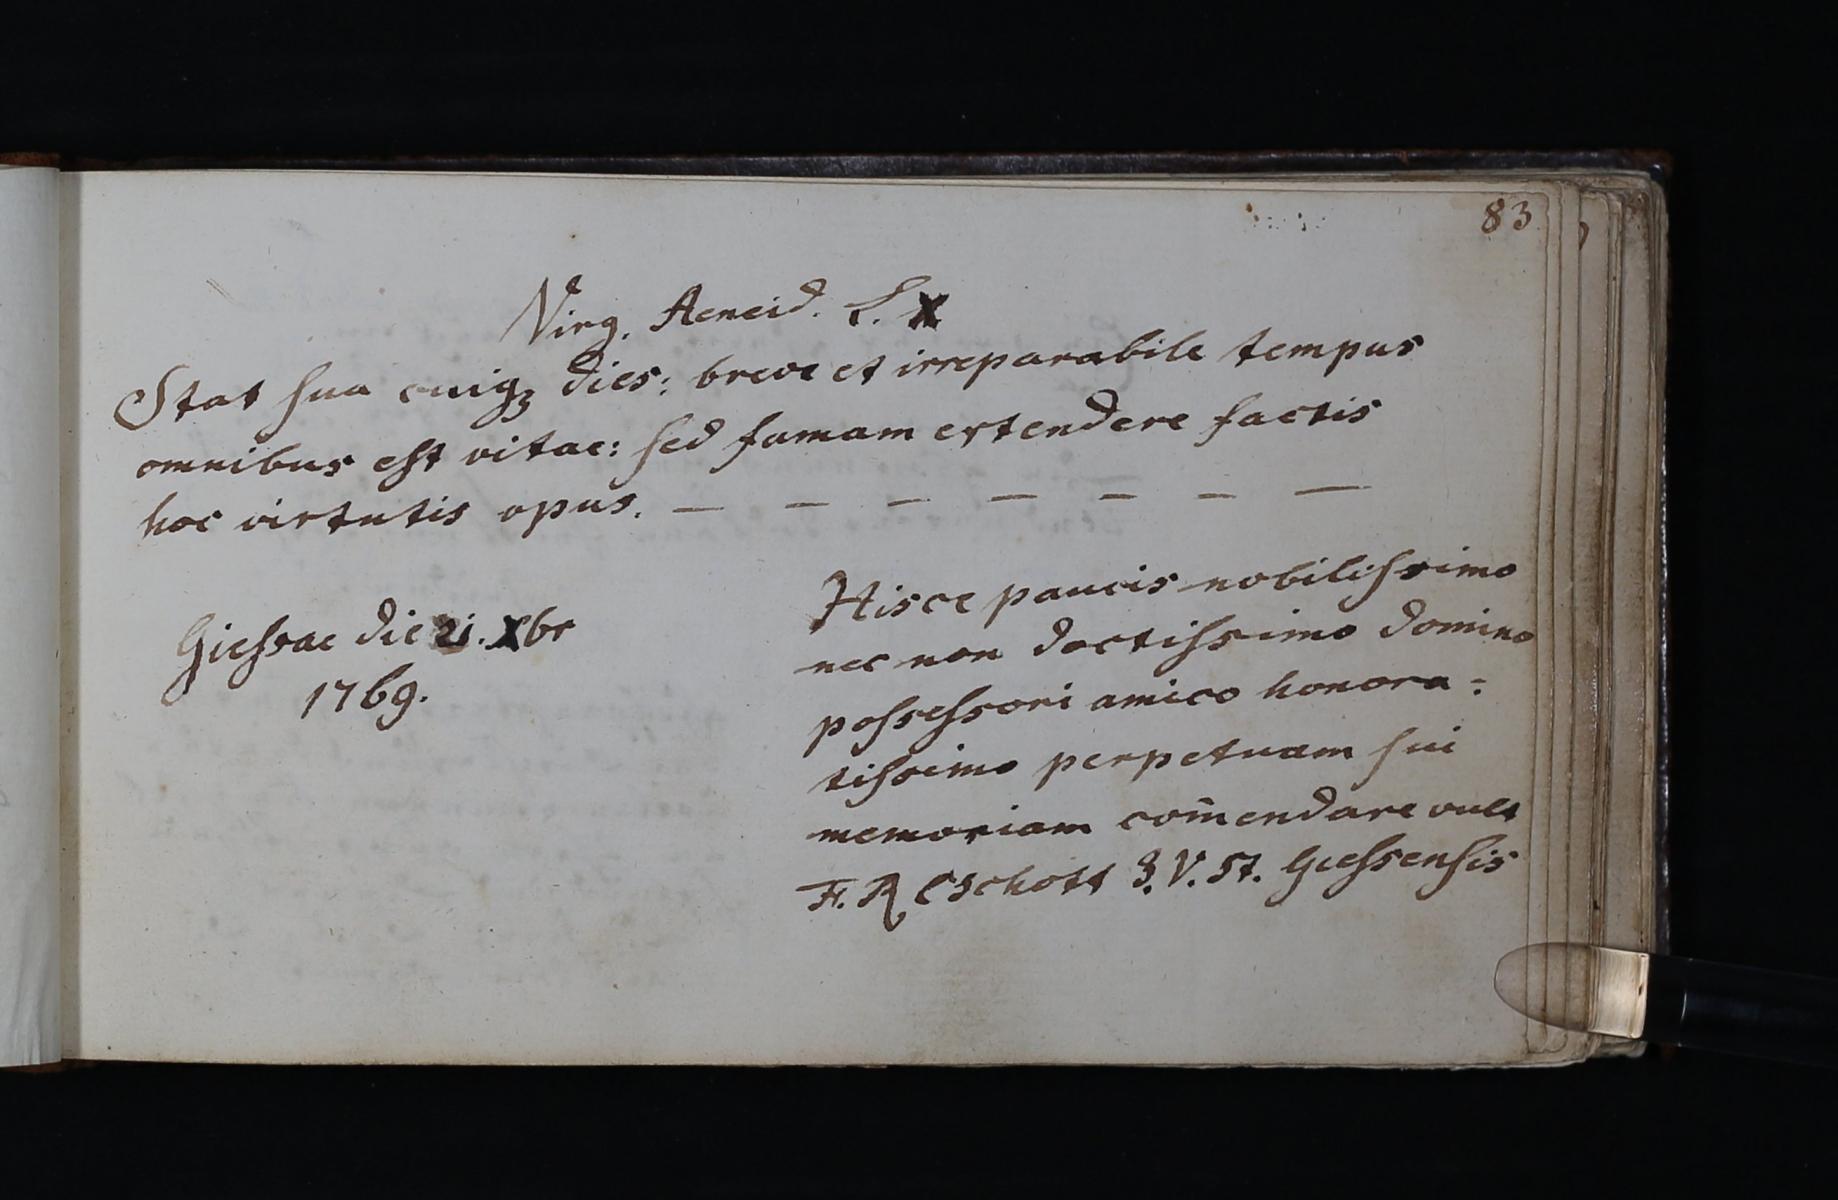 83
Virg. Aeneid. L. X
Stat sua cuiqꝫ dies: breve et irreparabile tempus
omnibus est vitae: sed famam extendere factis
hoc virtutis opus. — — — — — — —
Giessae die 21. Xbr
1769.
Hisce paucis nobilissimo
nec non doctissimo domino
possessori amico honora-
tissimo perpetuam sui
memoriam com̄endare vult
F. R. C Schott J. V. St. Giessensis